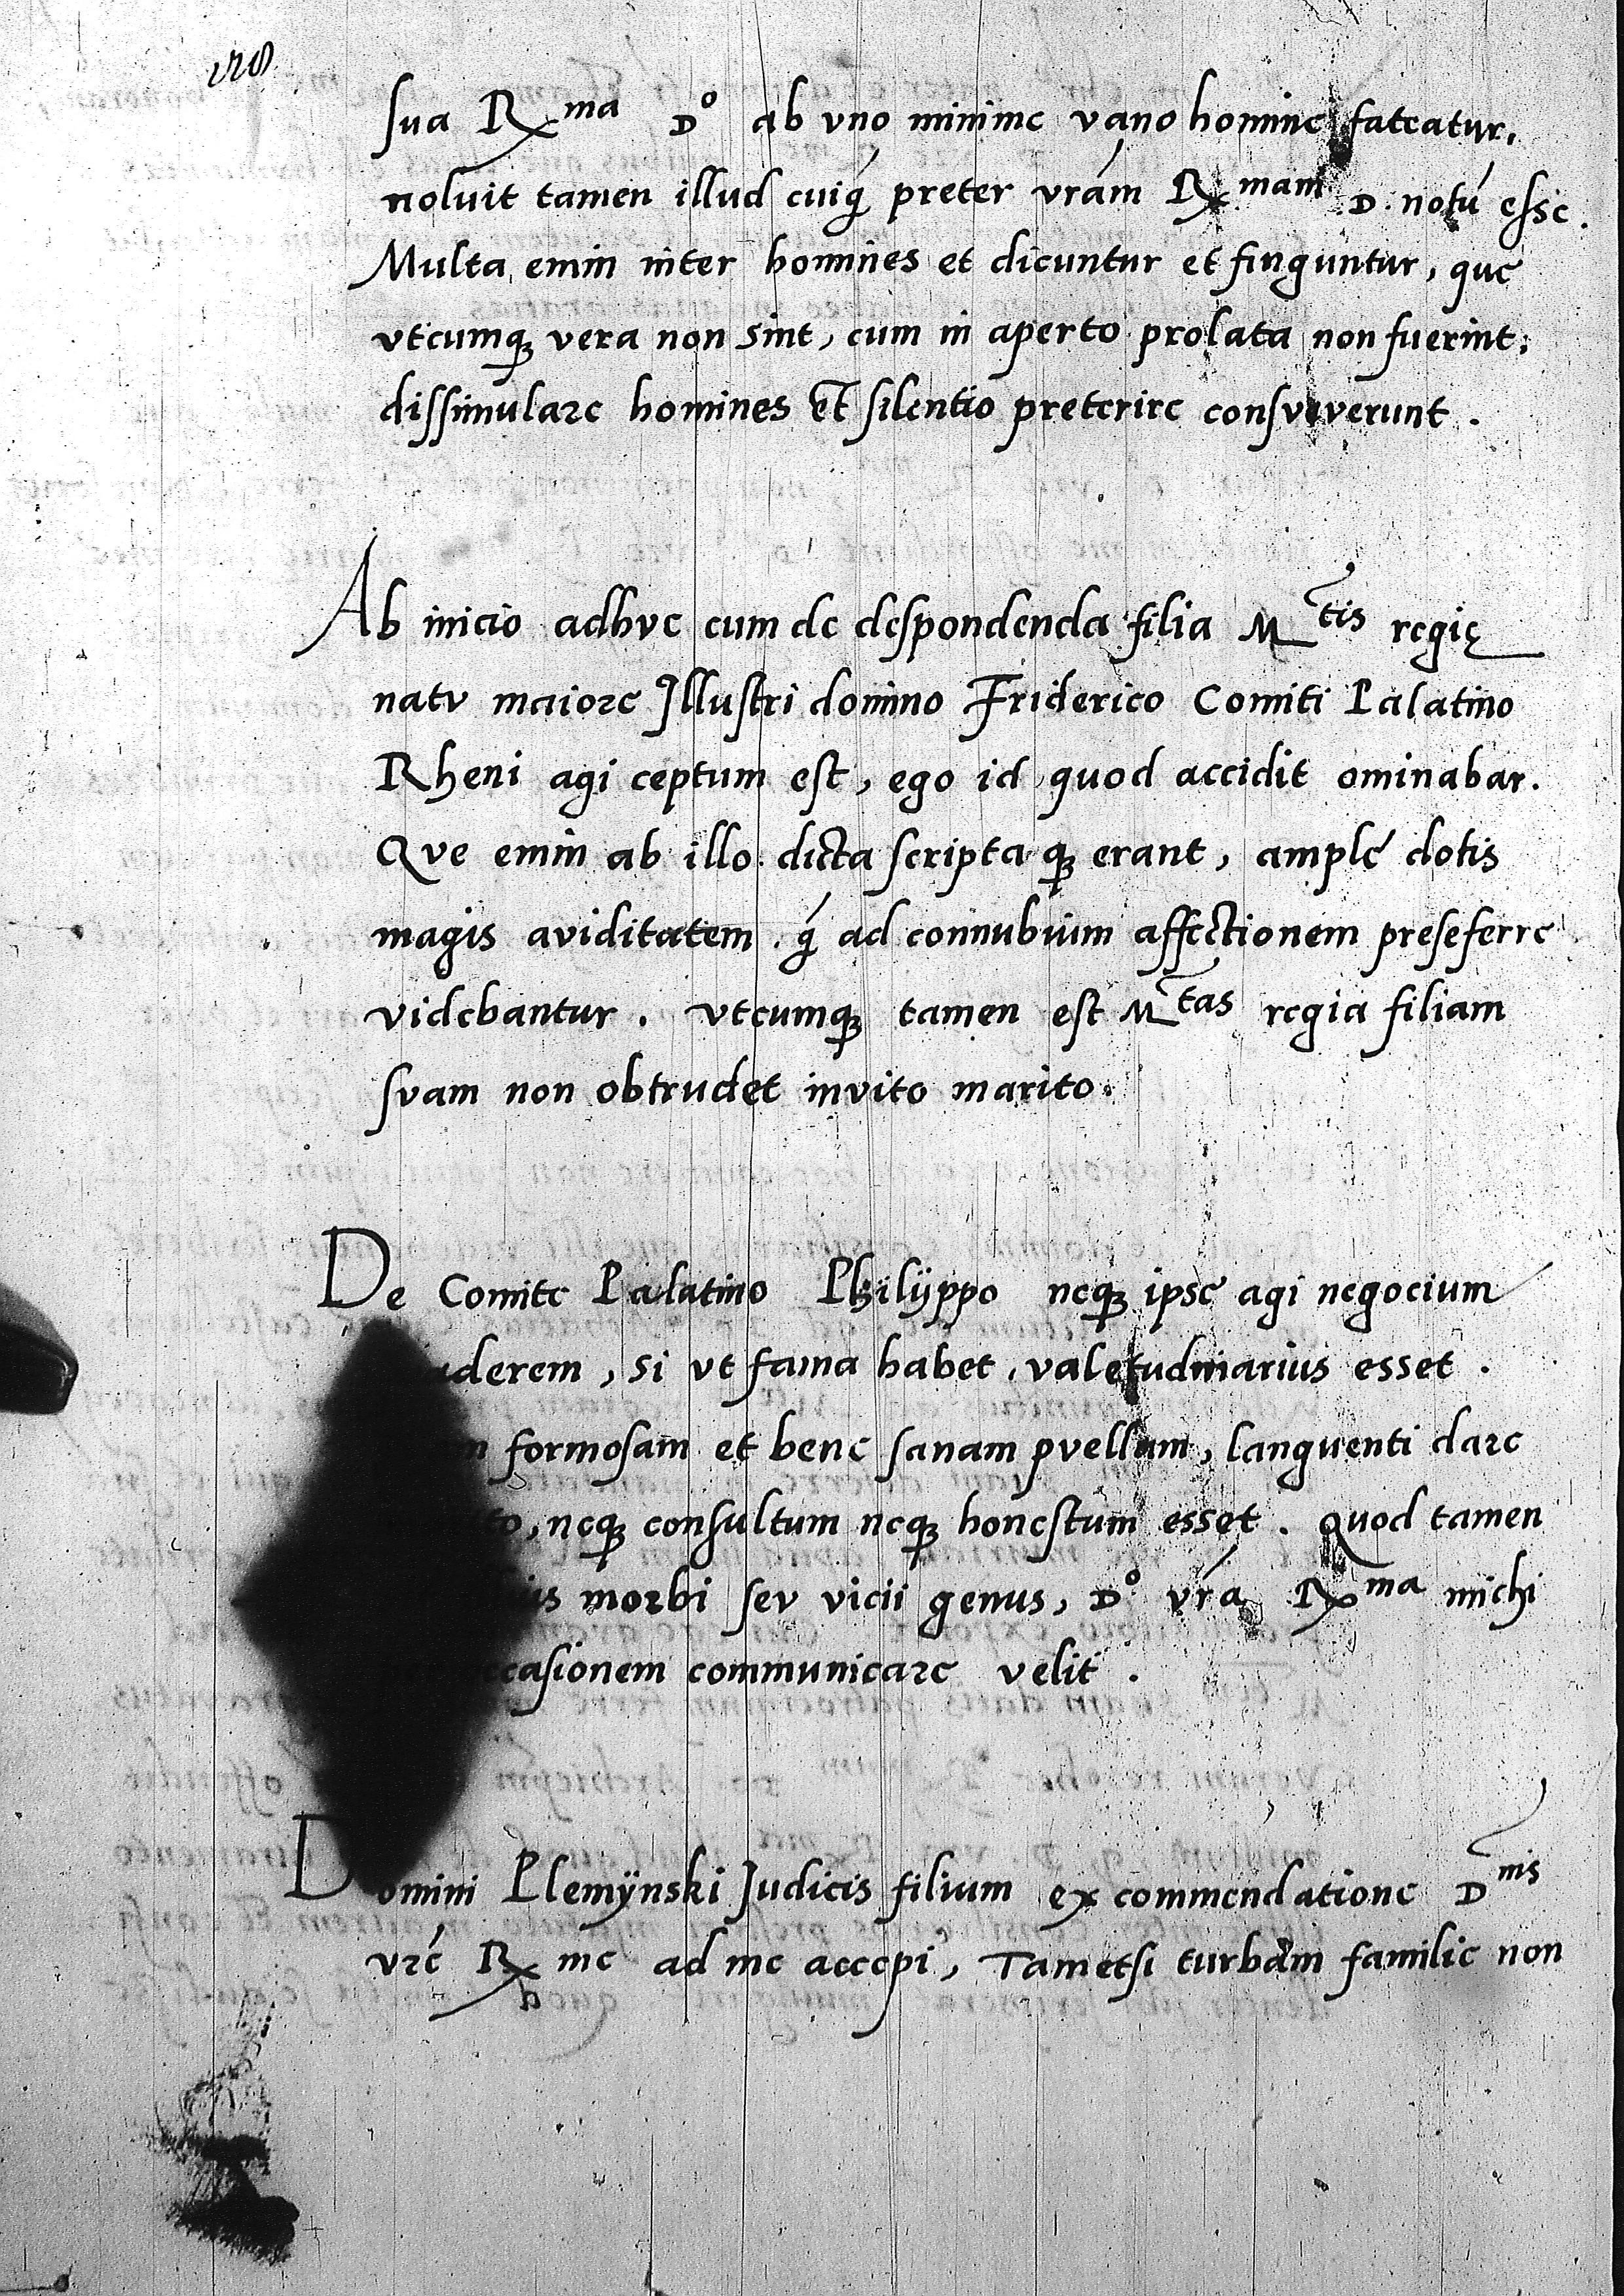 sua Rx^ma D^o ab vno minime vano homine fateatur,
noluit tamen illud cuiq́ preter vrám Rx^mam D. notú esse.
Multa enim inter homines et dicuntur et finguntur, que
vtcumqꝫ vera non sint, cum in aperto prolata non fuerint,
dissimulare homines et silentio preterire consueverunt.
Ab inicio adhuc cum de despondenda filia M^tis regię
natv maiore Illustri domino Friderico Comiti Palatino
Rheni agi ceptum est, ego id quod accidit ominabar.
Qve enim ab illo dicta scriptaqꝫ erant, amplę dotis
magis aviditatem, q́ ad connubium affectionem preseferre
videbantur. vtcumqꝫ tamen est M^tas regia filiam
svam non obtrudet invito marito.
De Comite Palatino Philyppo neqꝫ ipse agi negocium
uderem, si vt fama habet, valetudinarius esset.
formosam et bene sanam pvellam, languenti dare
to, neqꝫ consultum neqꝫ honestum esset. Quod tamen
us morbi sev vicii genus, D^o vrá Rx^ma michi
casionem communicare velit.
Domini Plemÿnski Judicis filium ex commendatione D^nis
vré Rx me ad me accepi, Tametsi turbam familie non